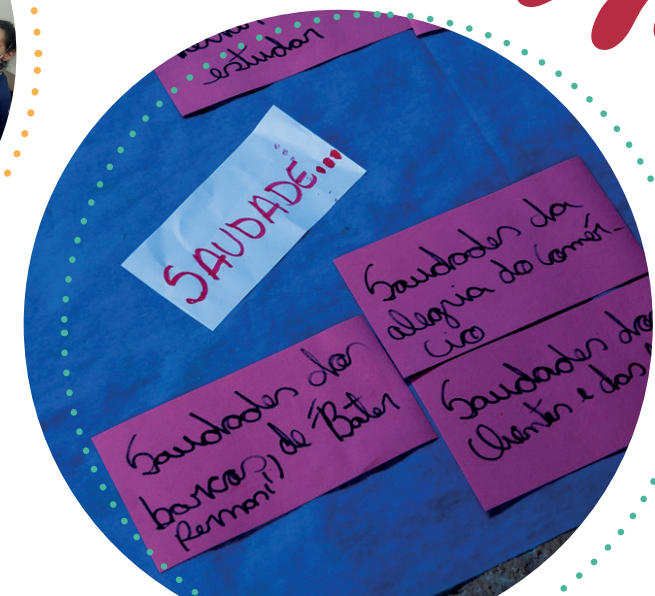 estudar
SAUDADE...
Saudades da
alegria do comér-
cio
Saudades das
barcas, de "Bater
Saudades dos
Clientes e das